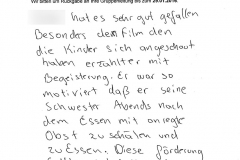 Wir bitten um Rückgabe an Ihre Gruppenleitung bis zum
hat es sehr gut gefallen
Besonders dem Film den
die Kinder sich angeschaut
haben erzählter mit
Begeisterung. Er war so
motiviert daß er seine
Schwester Abends nach
dem Essen mit anregte
Obst zu schälen und
zu Essen. Diese förderung